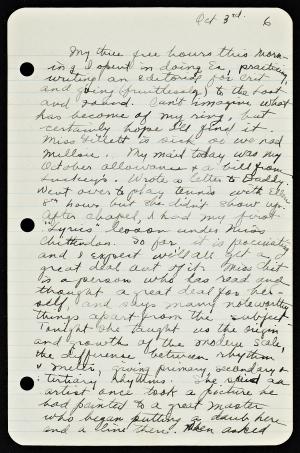 Oct 3rd.
6
My three free hours this morn-
ing I spent in doing Ec, practicing,
writing an editorial for Crit
and going (fruitlessly) to the Lost
and Found. Can't imagine what
has become of my ring, but
certainly hope I'll find it.
Miss is sick so we had
. My mail today was my
October allowance & a bill from
. Wrote a letter to Daddy.
Went over to play tennis with Ellen
5th hour, but she didn't show up.
After chapel, I had my first
"Lyrics" lesson under Miss
Chittenden. So far, it is fascinating
and I expect we'll all get a
great deal out of it. Miss Chit
is a person who has read and
thought a great deal for her-
self, and says many noteworthy
things apart from the subject.
Tonight she taught us the origin
and growths of the modern scale,
the difference between rhythm
& meter, giving primary, secondary &
tertiary rhythms. She said an
artist once took a picture he
had painted to a great master
who began putting a daub here
and a line there. When asked